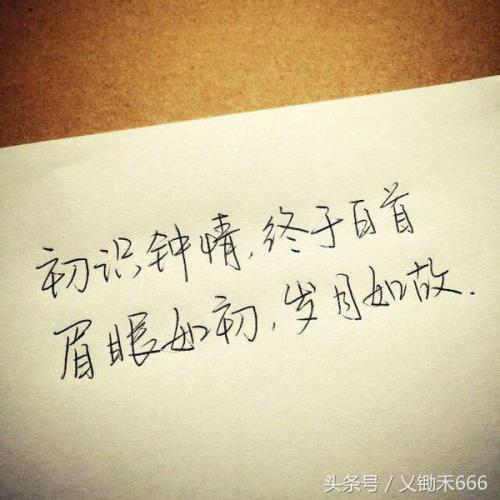 初识钟情,终于白首
眉眼如初,岁月如故.
头条号／乂锄禾666